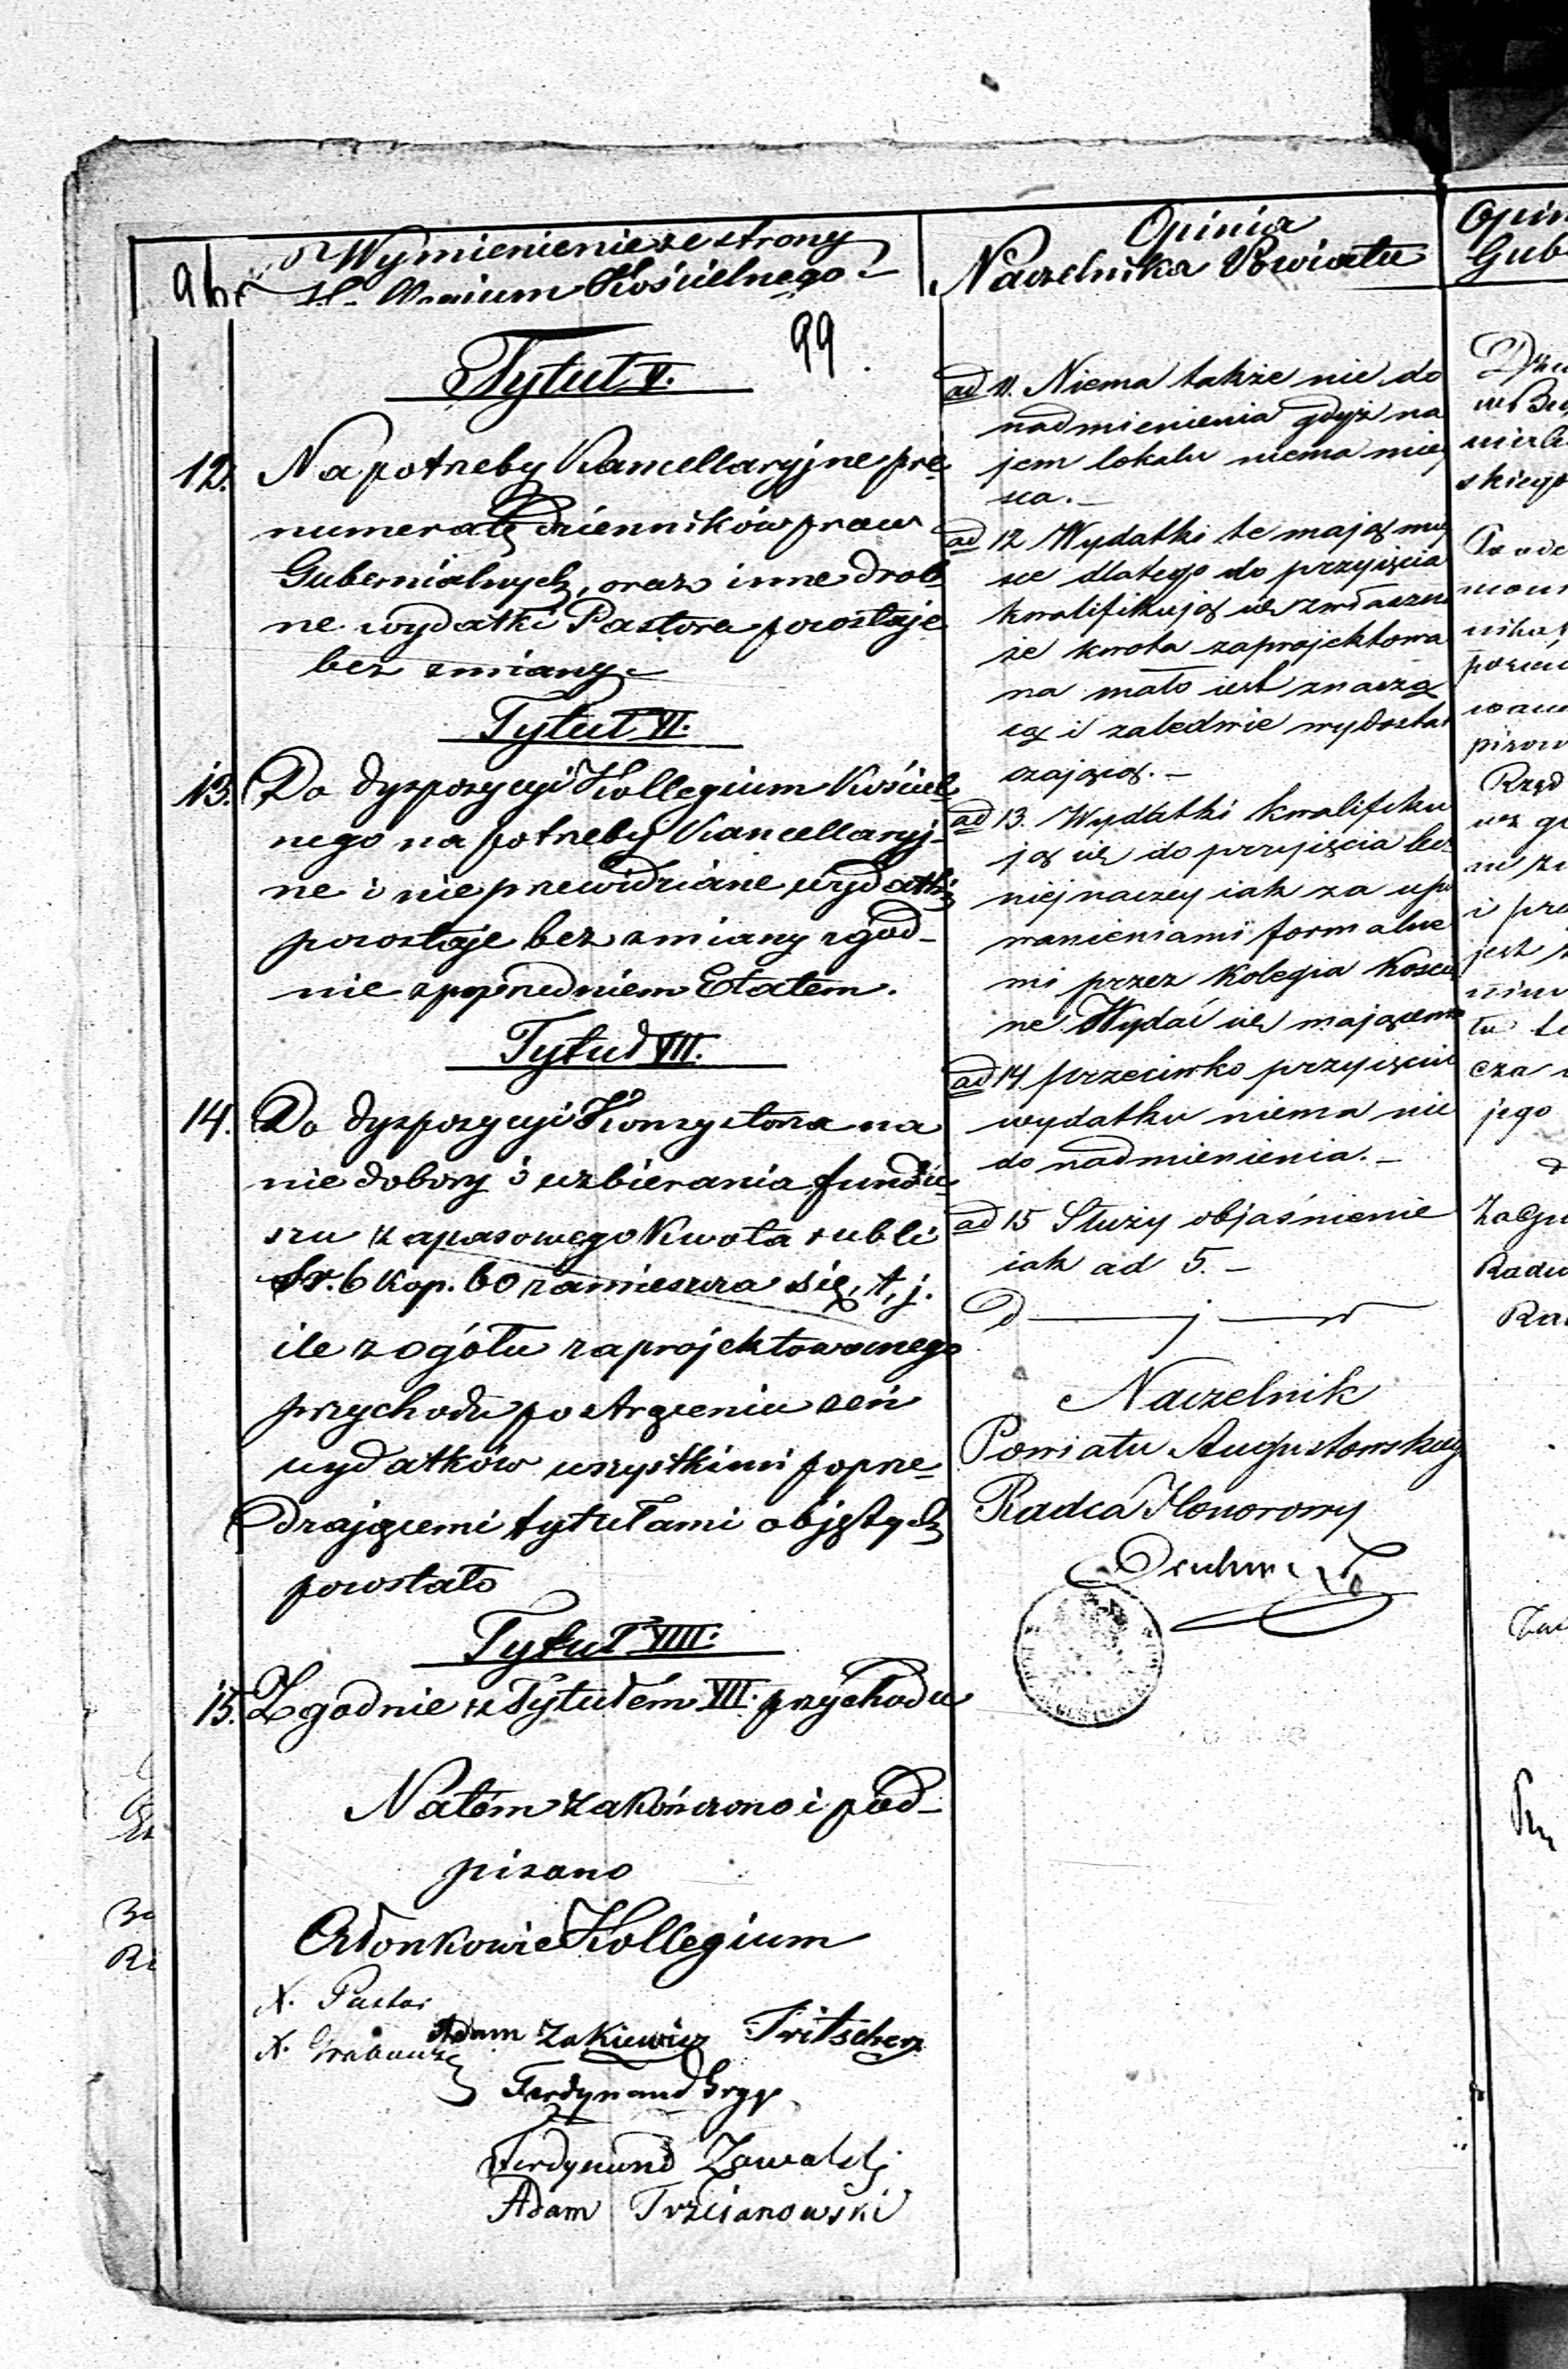 Wymienienie ze strony
Kościelnego
99
Tytuł V.
12. Na potrzeby Kancellaryjne pre
numeratę dzienników praw
Gubernialnych, oraz inne drob
ne wydatki Pastora pozostaje
bez zmiany.
Tytuł VI.
13. Do dyspozycyi Kollegium Kościel
nego na potrzeby Kancellaryj-
ne i nieprzewidziane wydatki
pozostaje bez zmiany zgod-
nie z poprzedniem Etatem.
Tytuł VII.
14. Do dyspozycyi Konsystorza na
niedobory i uzbierania fundu
szu zapasowego Kwota rubli
Sr. 6 kop. 60 zamieszcza się, t, j.
ile z ogółu zaprojektowanego
przychodu po strąceniu zeń
wydatków wszystkimi poprze-
dzającemi tytułami objętych
pozostało
Tytuł VIII.
15. Zgodnie z Tytułem VII. przychodu
Natém zakończono i pod-
pisano
Członkowie Kollegium
X. Pastor
Adam Zakiewicz Fritscher
X.
Ferdynand
Ferdynand
Adam Trzcianowski
Opinia
Naczelnika Powiatu
ad 11. Niema także nic do
nadmienienia gdyż na
jem lokalu niema miej
sca.-
ad 12 Wydatki te mają miej
sce dlatego do przyjęcia
kwalifikują się zwłaszcza
że kwota zaprojektowa
na mało jest znaczą
cą i zaledwie wydostat
czającą.-
ad 13. Wydatki kwalifiku
ją się do przyjęcia lecz
niejnaczej iak za upo
ważnieniami formalne
mi przez Kolegia Koście
ne Wydać się mającemi
ad 14 przeciwko przyjęciu
wydatku niema nic
do nadmienienia.-
ad 15 Służy objaśnienie
iak ad 5.-
Naczelnik
Powiatu Augustowskiego
Radca Honorowy
Opin
Gub
Rząd
jego